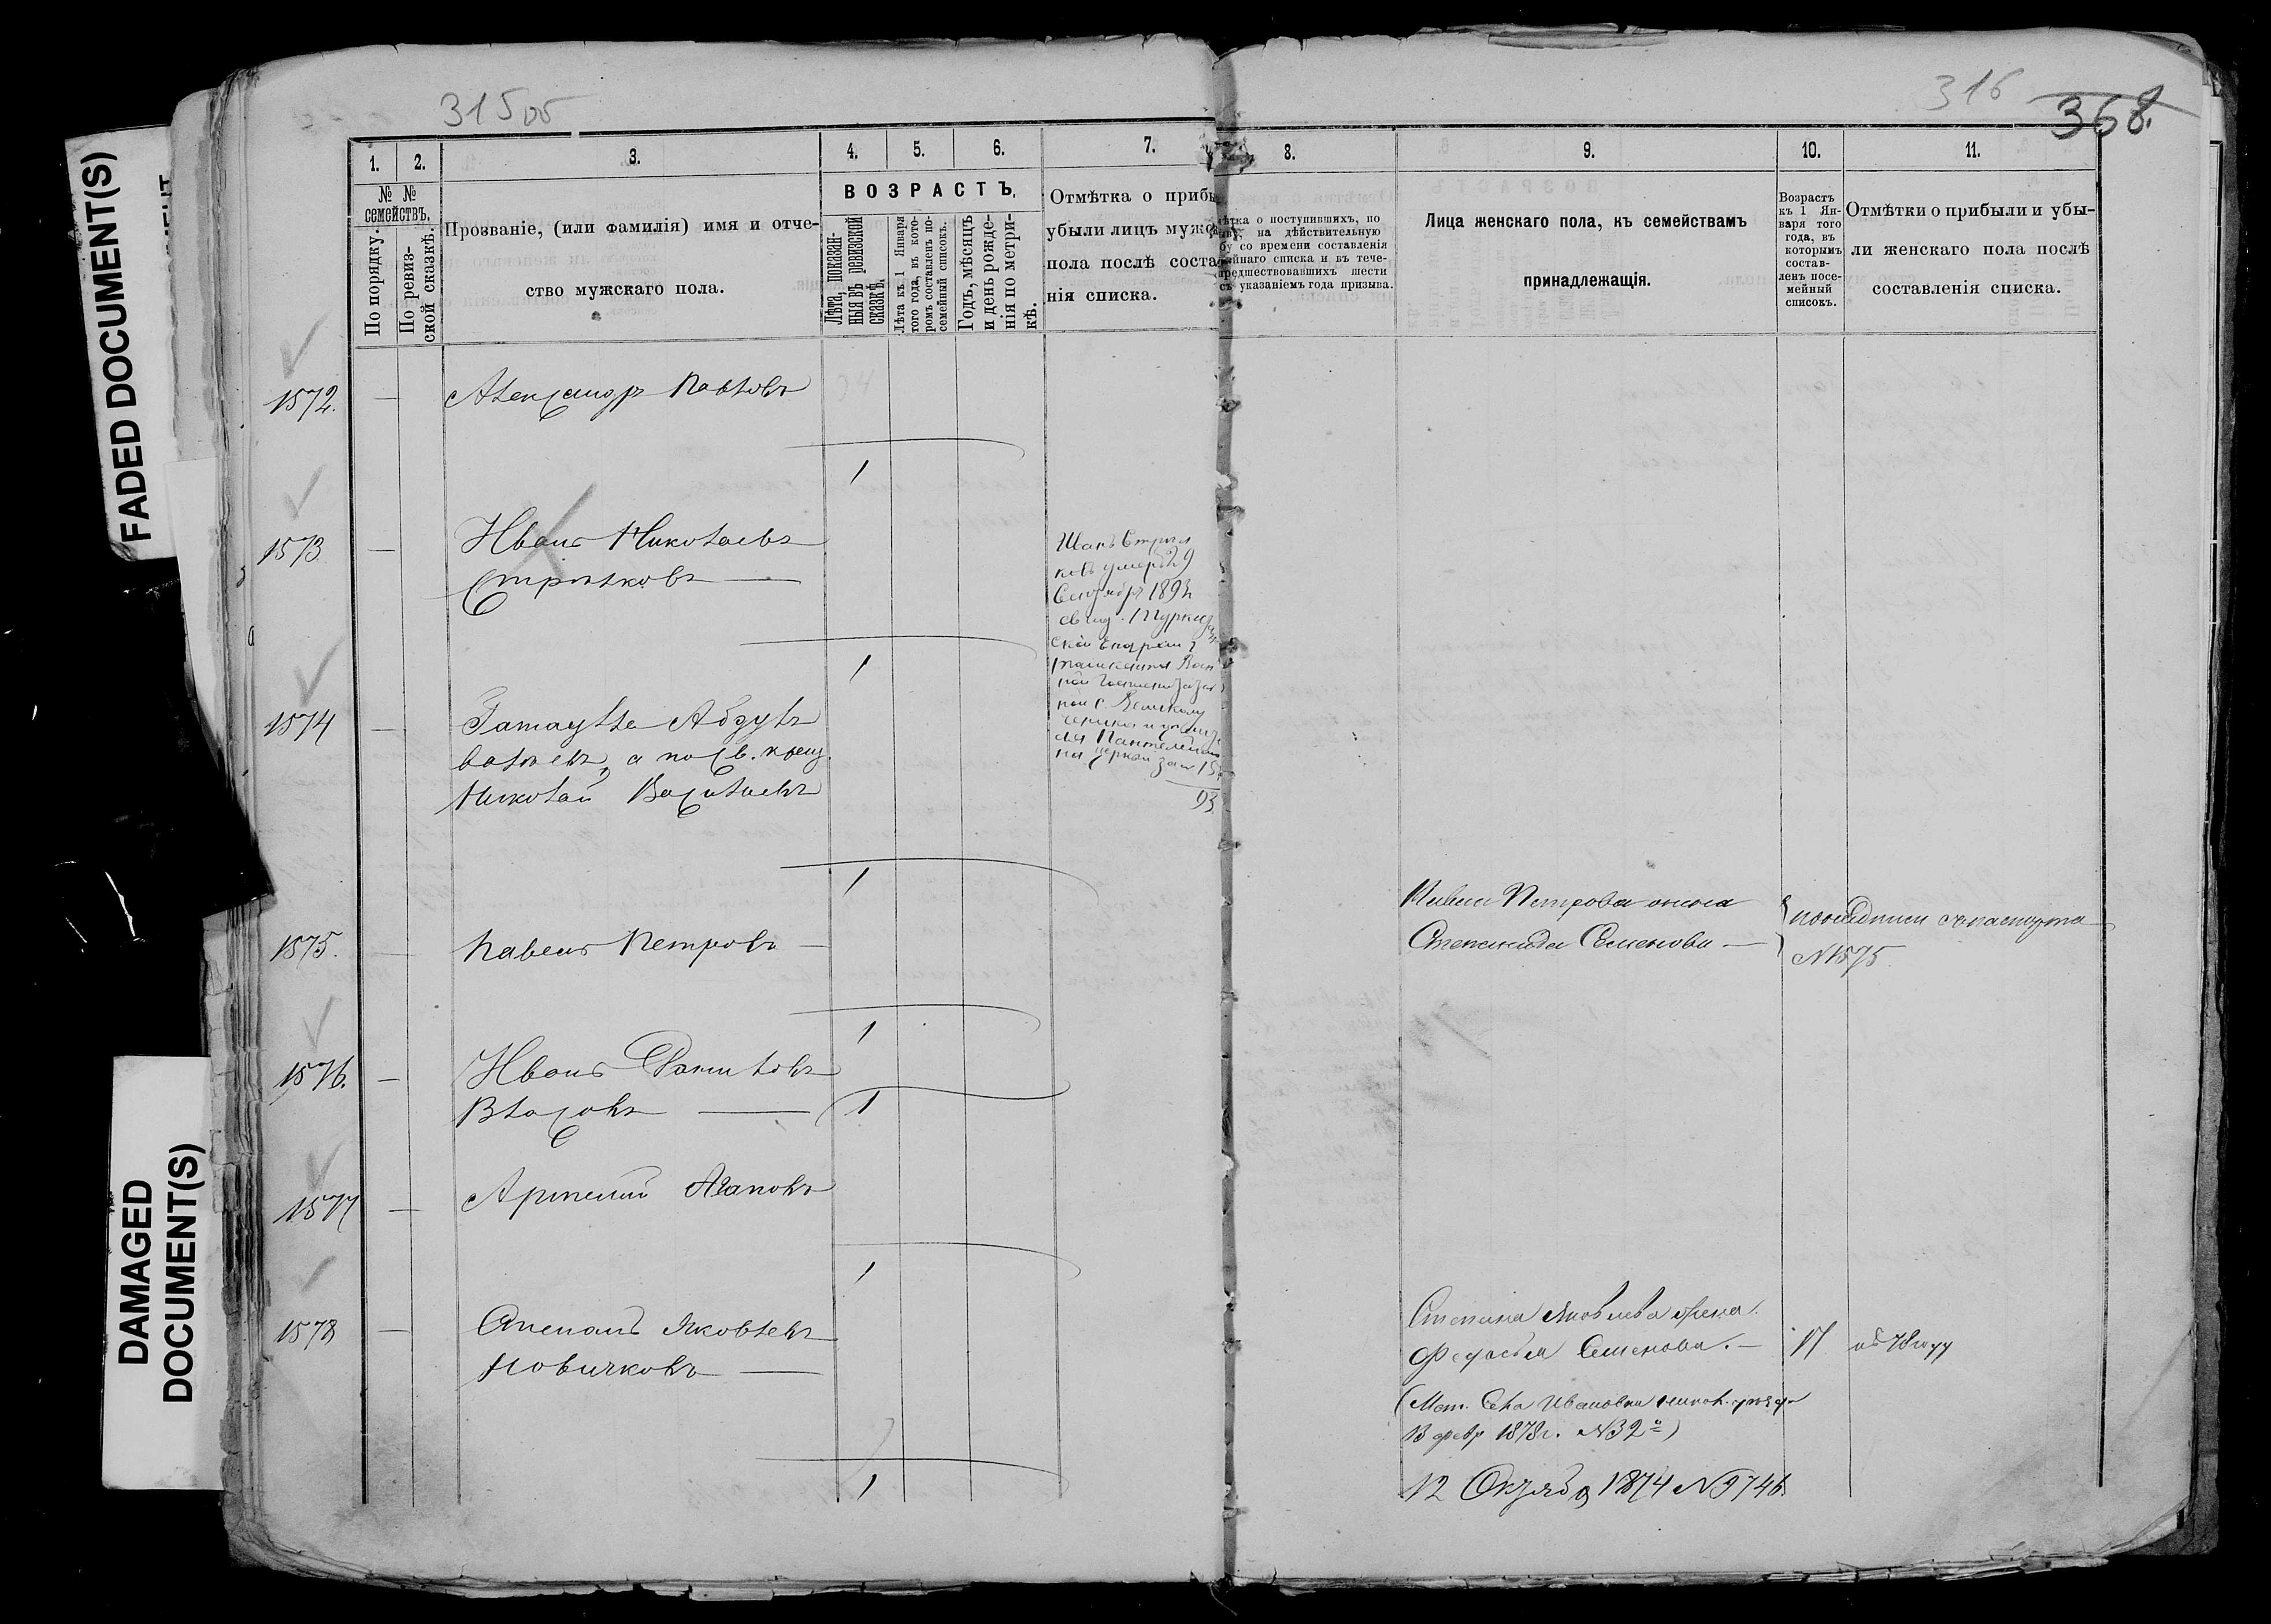 FADED DOCUMENT(S)
DAMAGED DOCUMENT(S)
315 об
316
368.
1. 2. 3. 4. 5. 6. 7.
№ № семействъ.
По порядку.
По ревизской сказкѣ.
Прозваніе, (или фамилія) имя и отче-
ство мужскаго пола.
ВОЗРАСТЪ.
Лѣта, показан-
ныя въ ревизской
сказкѣ.
Лѣта къ 1 Января
того года, въ кото-
ромъ составленъ по-
семейный списокъ.
Годъ, мѣсяцъ
и день рожде-
нія по метри-
кѣ.
Отмѣтка о прибы
убыли лицъ мужс
пола послѣ соста
нія списка.
8. 9. 10. 11.
ѣтка о поступившихъ, по
на дѣйствительную
бу со времени составленія
йнаго списка и въ тече-
редшествовавшихъ шести
съ указаніемъ года призыва.
Лица женскаго пола, къ семействамъ
принадлежащія.
Возрастъ
къ 1 Ян-
варя того
года, въ
которымъ
состав-
ленъ посе-
мейный
списокъ.
Отмѣтки о прибыли и убы-
ли женскаго пола послѣ
составленія списка.
1572. — Александръ Павловъ
1
1573 — Иванъ Николаевъ
Стрѣлковъ —
Иванъ Стрѣл
ковъ умеръ 29
Сентября 1893
свид. Турке
ской Епархіи
93
1
1574 — Гатаулла Абдул
валѣевъ, а по св. крещ.
Николай Васильевъ
1
1575. — Павелъ Петровъ —
Павла Петрова жена
Степанида Семенова —
паспорта
№ 1575
1
1576. — Иванъ Даниловъ
Власовъ —
1
1577 — Арсений Агаповъ
1
1578 — Степанъ Яковлевъ
Новичковъ —
Степана Яковлева жена
Федосья Семенова. — 17 въ 78 году
Ивановна
В февр 1878 г. № 32)
12 Октяб 1874 № 9746
1